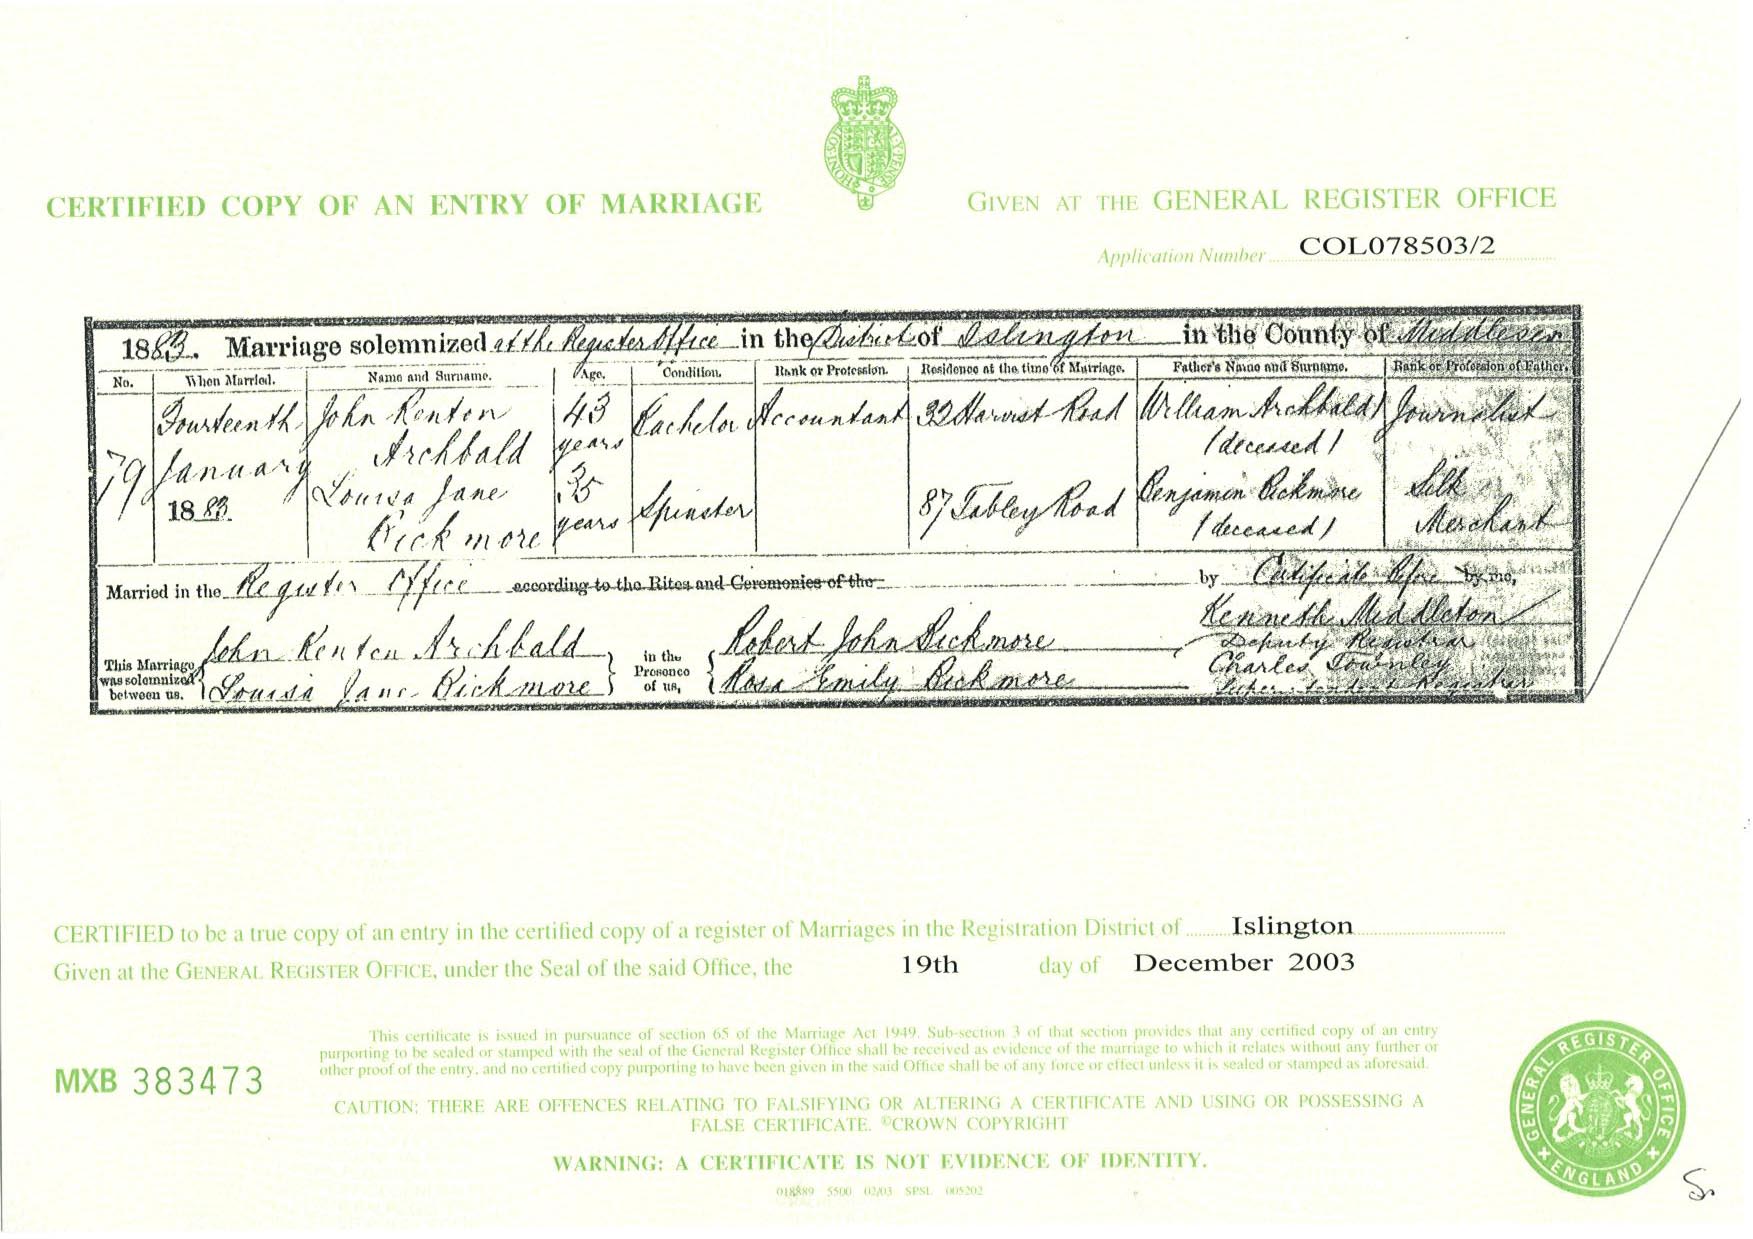 CERTIFIED COPY OF AN ENTRY OF MARRIAGE
GIVEN AT THE GENERAL REGISTER OFFICE
Application Number COL078503/2
1883. Marriage solemnized at the Register Office in the District of Islington in the County of Middlesex
No. When Married. Name and Surname. Age. Condition. Rank or Profession. Residence at the time of Marriage. Father's Name and Surname. Rank or Profession of Father.
79
Fourteenth
January
1883.
John Renton
Archbald
43
years
Bachelor
Accountant
Road
William Archbald
(deceased)
Journalist
Louisa Jane
Bickmore
35
years
Spinster
87 Tabley Road
Benjamin Bickmore
(deceased)
Silk
Merchant
Married in the Register Office according to the Rites and Ceremonies of the by Certificate Before by me,
This Marriage
was solemnized
between us,
John Renton Archbald
Louisa Jane Bickmore
in the
Presence
of us,
Robert John Bickmore
Rosa Emily Bickmore
Kenneth Middleton
Deputy Registrar
Charles Townley
Superintendent Registrar
CERTIFIED to be a true copy of an entry in the certified copy of a register of Marriages in the Registration District of Islington
Given at the GENERAL REGISTER OFFICE, under the Seal of the said Office, the 19th day of December 2003
This certificate is issued in pursuance of section 65 of the Marriage Act 1949. Sub-section 3 of that section provides that any certified copy of an entry
purporting to be sealed or stamped with the seal of the General Register Office shall be received as evidence of the marriage to which it relates without any further or
other proof of the entry, and no certified copy purporting to have been given in the said Office shall be of any force or effect unless it is sealed or stamped as aforesaid.
MXB 383473
CAUTION: THERE ARE OFFENCES RELATING TO FALSIFYING OR ALTERING A CERTIFICATE AND USING OR POSSESSING A
FALSE CERTIFICATE. ©CROWN COPYRIGHT
WARNING: A CERTIFICATE IS NOT EVIDENCE OF IDENTITY.
5500 02/03 SPSL 005202
GENERAL REGISTER OFFICE
ENGLAND